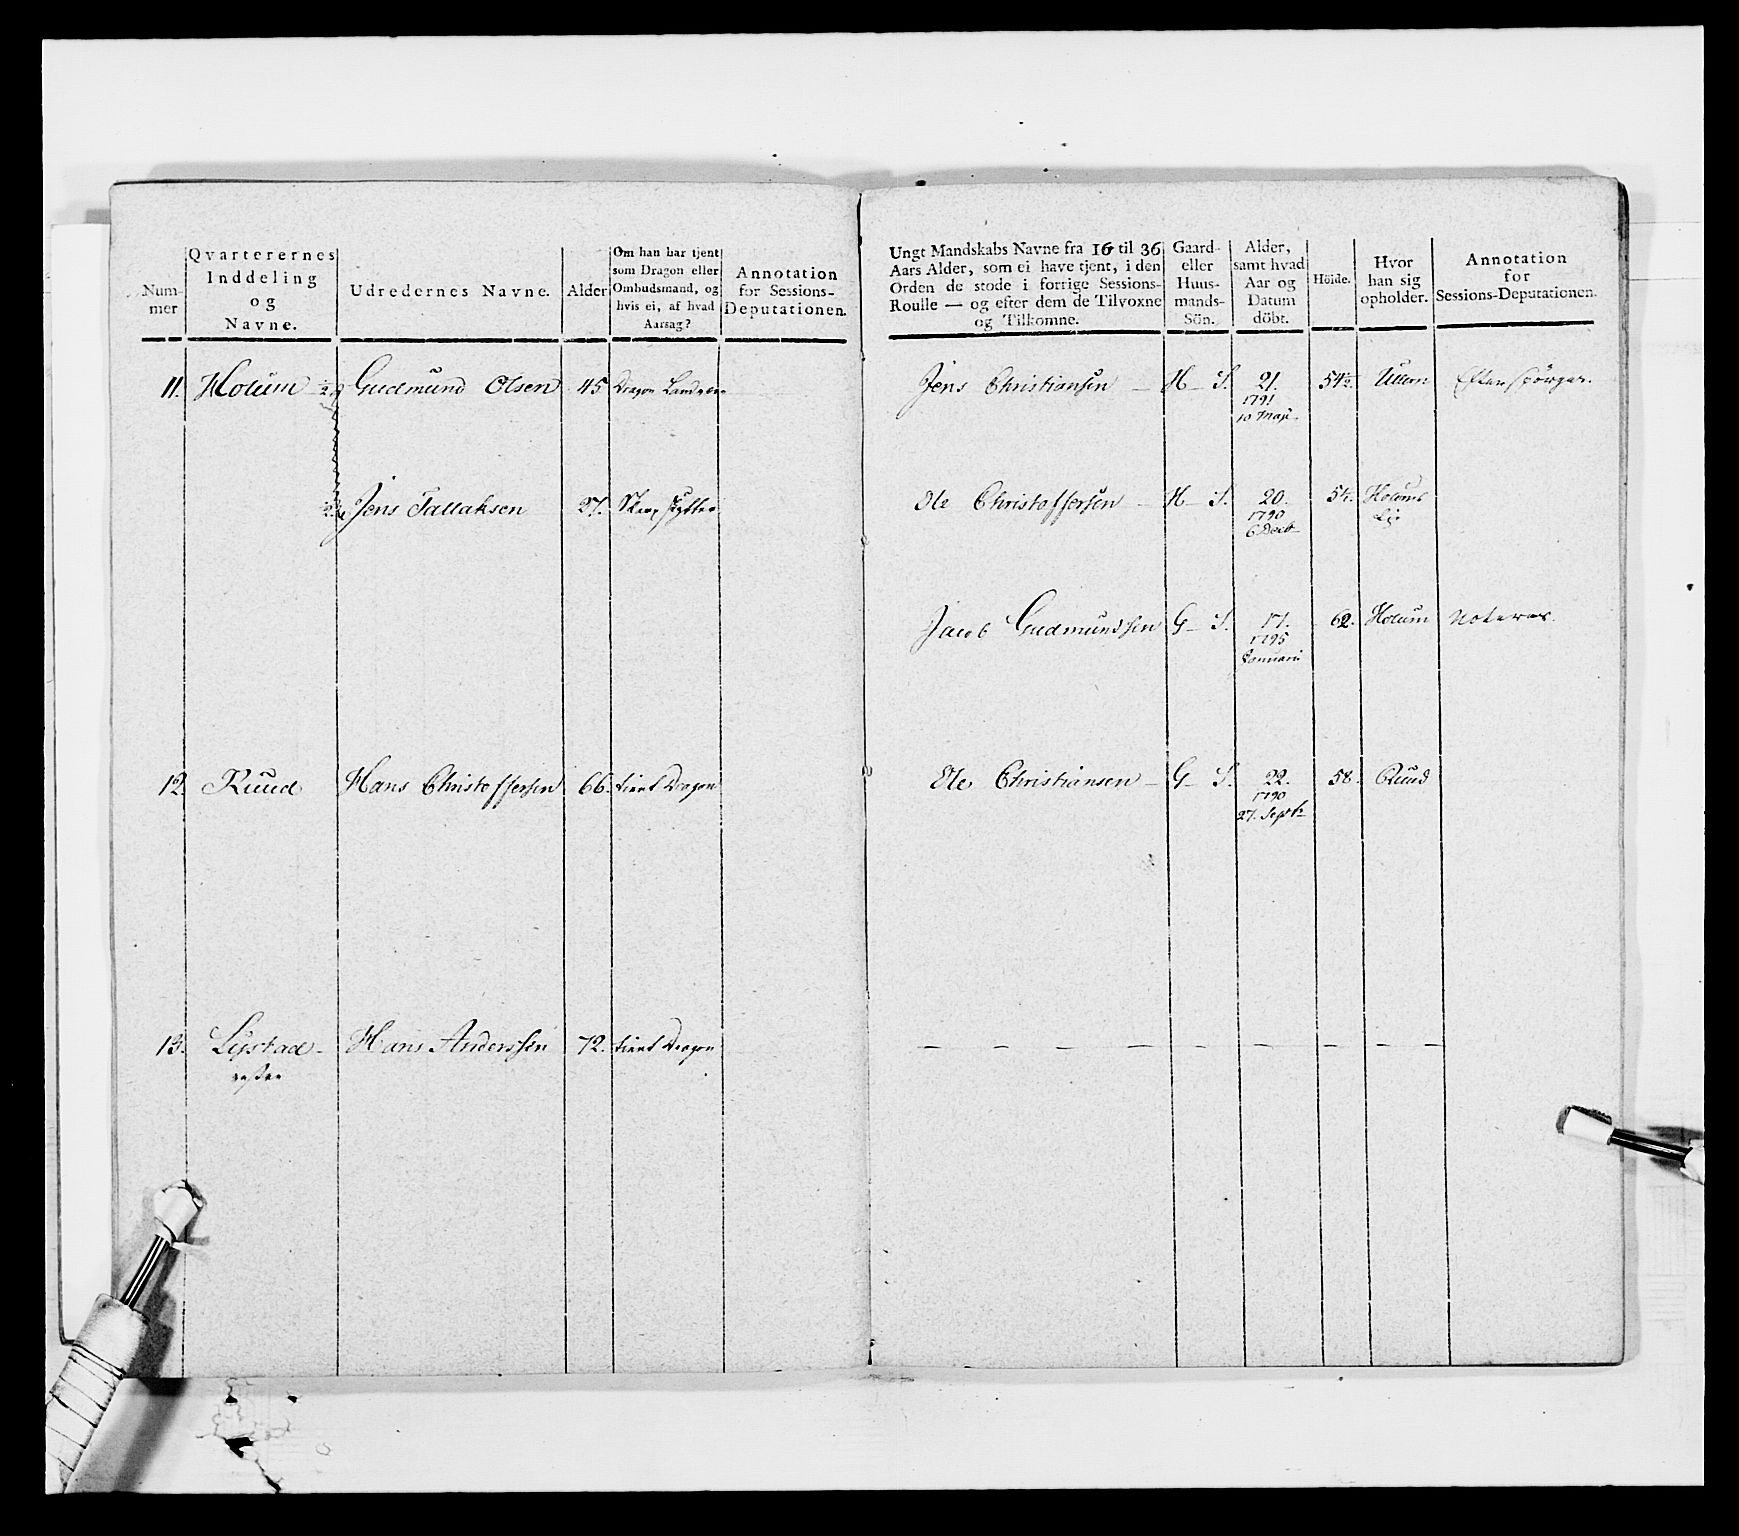 Num-
mer
Qvarterernes
Inddeling
og
Navne.
Udredernes Navne.
Alder
Om han har tjent
som Dragon eller
Ombudsmand, og
hvis ei, af hvad
Aarsag?
Annotation
for Sessions-
Deputationen.
11. Holum 1/2 Gudmund Olsen 45 Dragon
1/2 Jens Tallaksen 27. Skarpskytter
12 Ruud Hans Christoffersen 66. tient Dragon
13. Lystad Hans Anderssen 72. tient Dragon
Ungt Mandskabs Navne fra 16 til 36
Aars Alder, som ei have tjent, i den
Orden de stode i forrige Sessions-
Roulle — og efter dem de Tilvoxne
og Tilkomne.
Gaard-
eller
Huus-
mands-
Sön.
Alder,
samt hvad
Aar og
Datum
döbt.
Höide.
Hvor
han sig
opholder.
Annotation
for
Sessions-Deputationen.
Jens Christiansen — H — S. 21. 54 1/2 Ullern Efterspörges.
1791
10 Maji
Ole Christoffersen — H — S. 20. 5 Holums
1790 Eje
6 Decb
Jacob Gudmundsen G — S. 17. 62. Holum Noteres.
1795
Januari
Ole Christiansen — G — S. 22. 58. Ruud
1790
27. Septb
— — — — — — — —